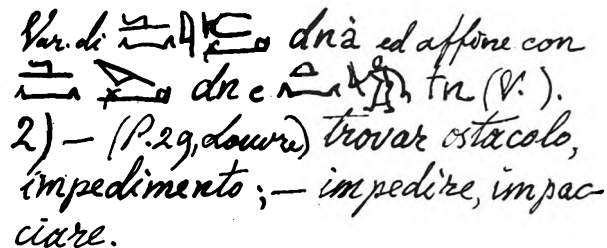 Var. di dnà ed affine con
dn e tn (V. ).
2) — (P. 29, Louvre) trovar ostacolo,
impedimento; — impedire, impac-
ciare.